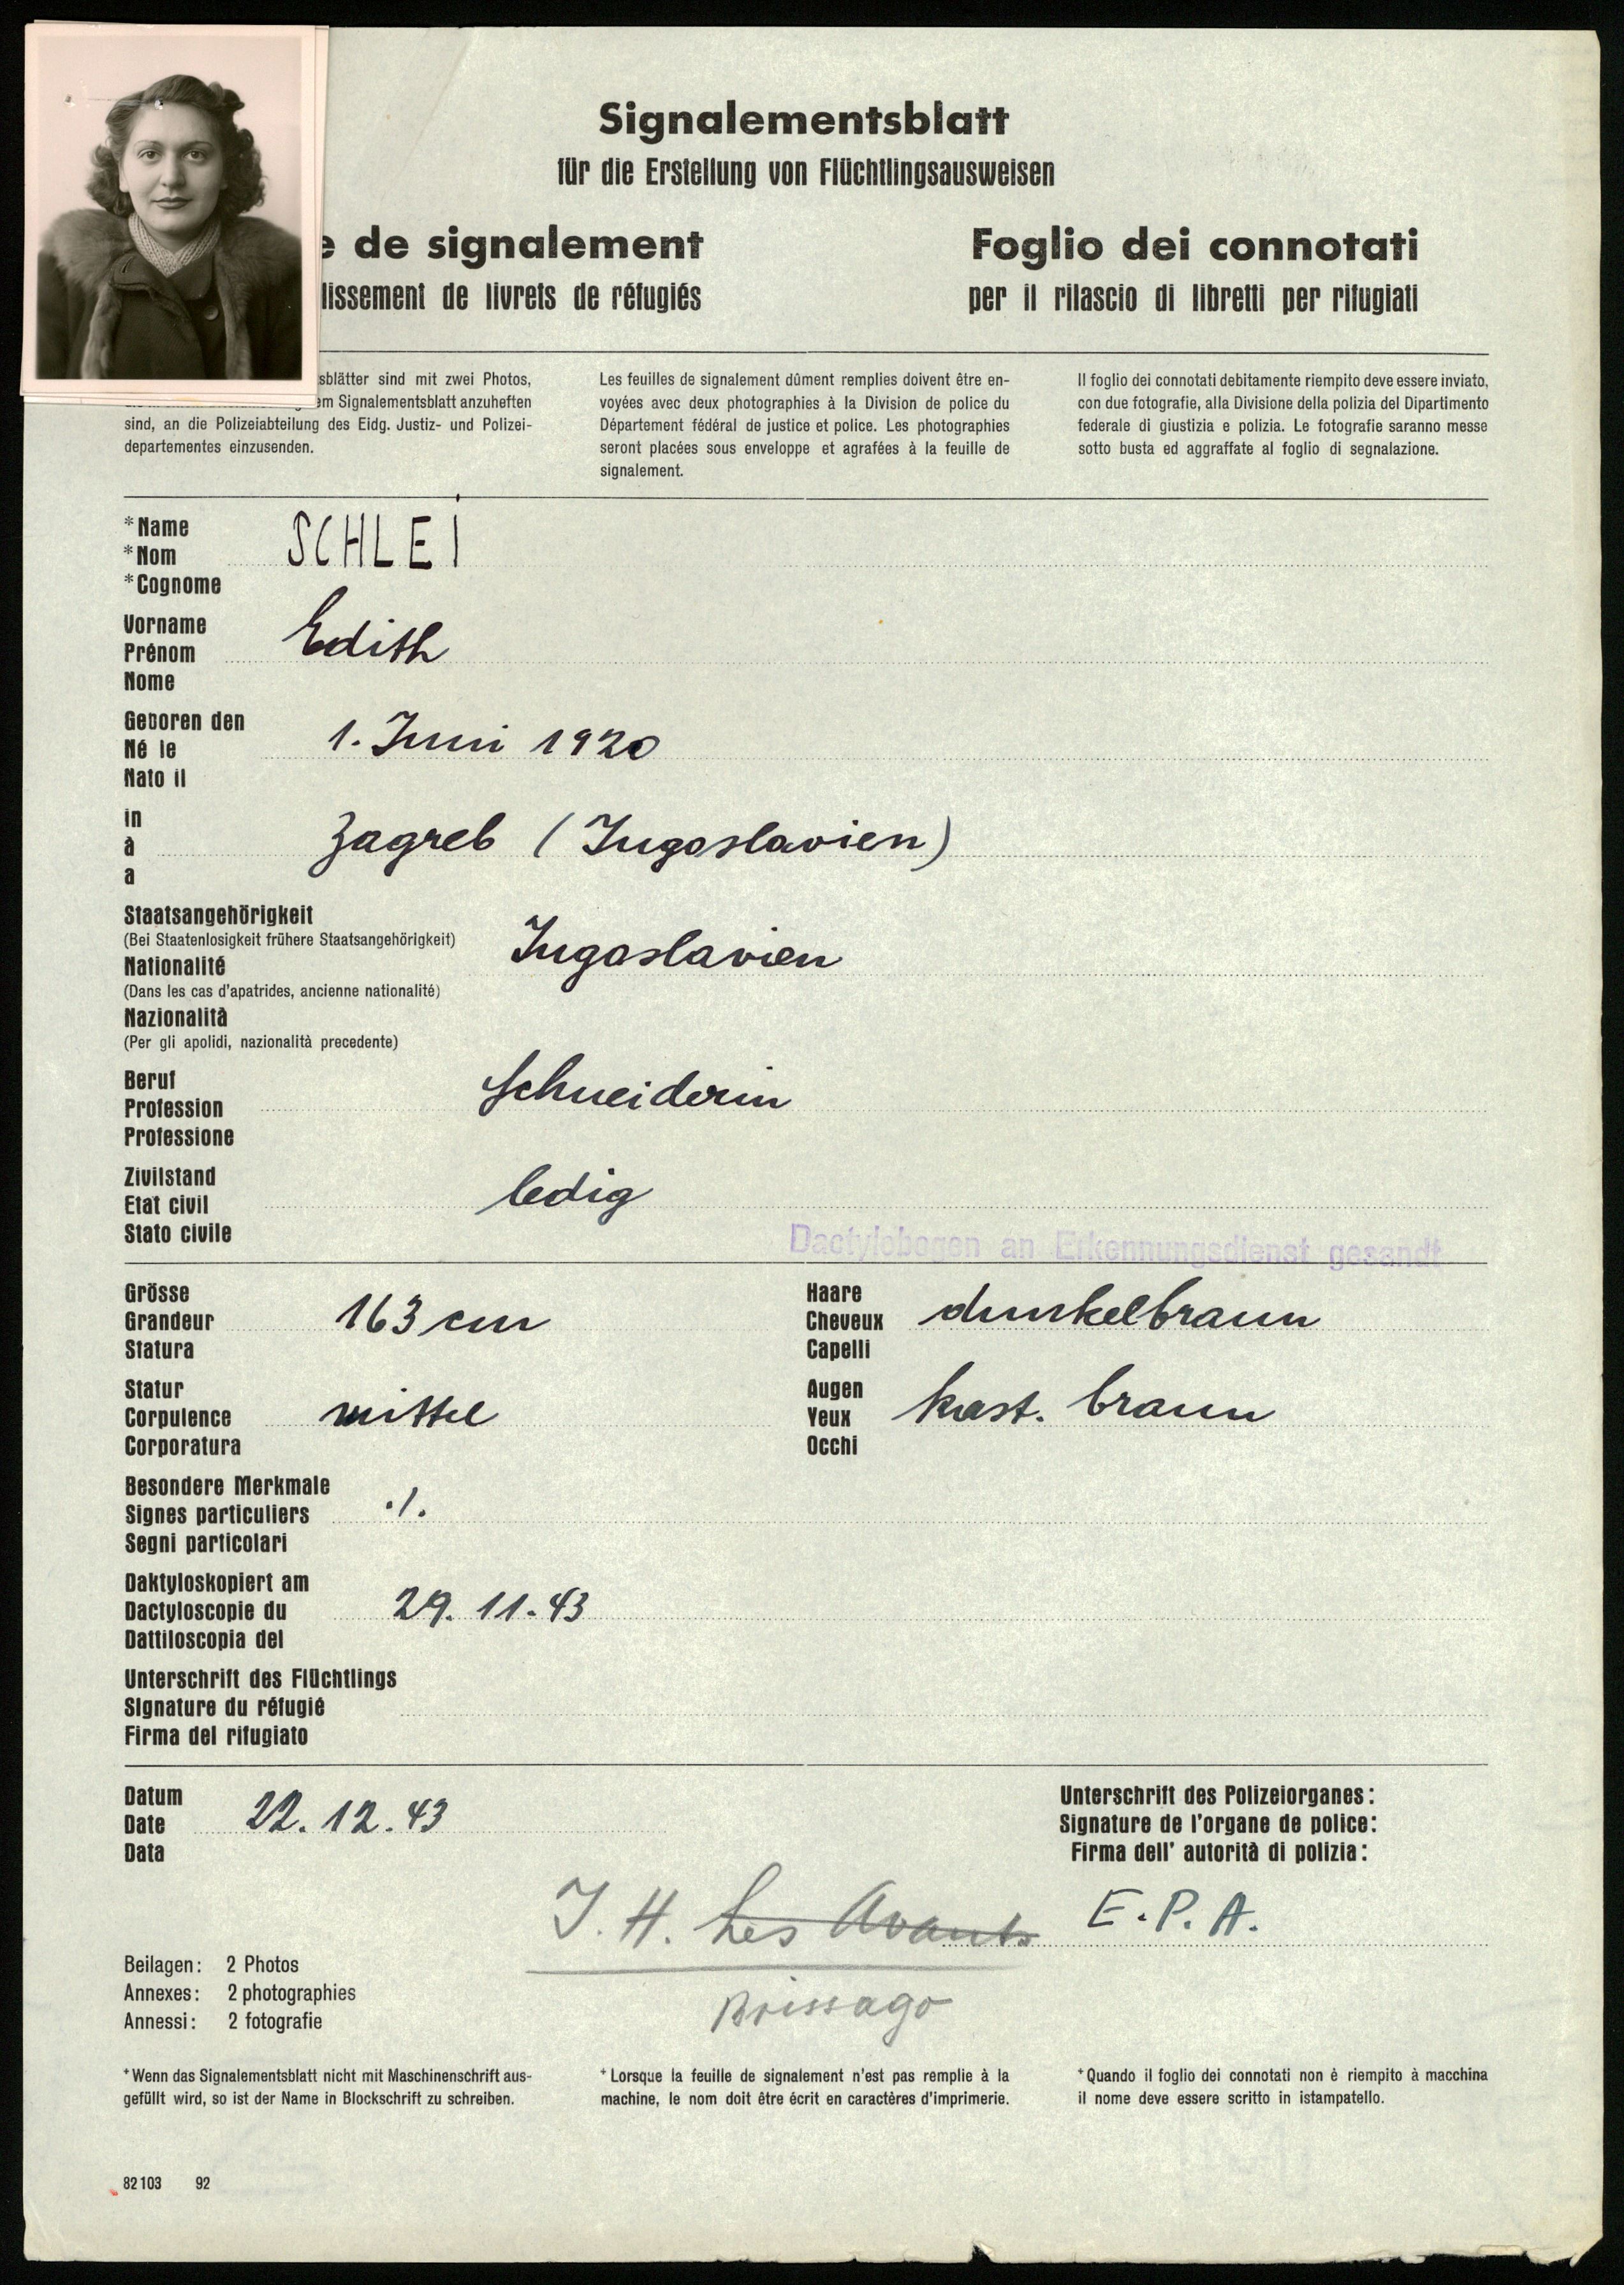 Signalementsblatt
für die Erstellung von Flüchtlingsausweisen
e de signalement
lissement de livrets de réfugiés
Foglio dei connotati
per il rilascio di libretti per rifugiati
sblätter sind mit zwei Photos,
em Signalementsblatt anzuheften
sind, an die Polizeiabteilung des Eidg. Justiz- und Polizei-
departementes einzusenden.
Les feuilles de signalement dûment remplies doivent être en-
voyées avec deux photographies à la Division de police du
Département fédéral de justice et police. Les photographies
seront placées sous enveloppe et agrafées à la feuille de
signalement.
Il foglio dei connotati debitamente riempito deve essere inviato,
con due fotografie, alla Divisione della polizia del Dipartimento
federale di giustizia e polizia. Le fotografie saranno messe
sotto busta ed aggraffate al foglio di segnalazione.
*Name
*Nom SCHLEI
*Cognome
Vorname
Prénom Edith
Nome
Geboren den
Né le 1. Juni 1920
Nato il
in
à Zagreb (Jugoslavien)
a
Staatsangehörigkeit
(Bei Staatenlosigkeit frühere Staatsangehörigkeit)
Nationalité Jugoslavien
(Dans les cas d'apatrides, ancienne nationalité)
Nazionalità
(Per gli apolidi, nazionalità precedente)
Beruf
Profession Schneiderin
Professione
Zivilstand
Etat civil ledig
Stato civile
Dactylobogen an Erkennungsdienst gesandt
Grösse
Grandeur 163 cm
Statura
Haare
Cheveux dunkelbraun
Capelli
Statur
Corpulence mittel
Corporatura
Augen
Yeux kast. braun
Occhi
Besondere Merkmale
Signes particuliers ./.
Segni particolari
Daktyloskopiert am
Dactyloscopie du 29. 11. 43
Dattiloscopia del
Unterschrift des Flüchtlings
Signature du réfugié
Firma del rifugiato
Datum
Date 22. 12. 43
Data
Unterschrift des Polizeiorganes:
Signature de l'organe de police:
Firma dell' autorità di polizia:
J. H. Les Avants E.P.A.
Brissago
Beilagen: 2 Photos
Annexes: 2 photographies
Annessi: 2 fotografie
+Wenn das Signalementsblatt nicht mit Maschinenschrift aus-
gefüllt wird, so ist der Name in Blockschrift zu schreiben.
+Lorsque la feuille de signalement n'est pas remplie à la
machine, le nom doit être écrit en caractères d'imprimerie.
+Quando il foglio dei connotati non è riempito à macchina
il nome deve essere scritto in istampatello.
82103 92